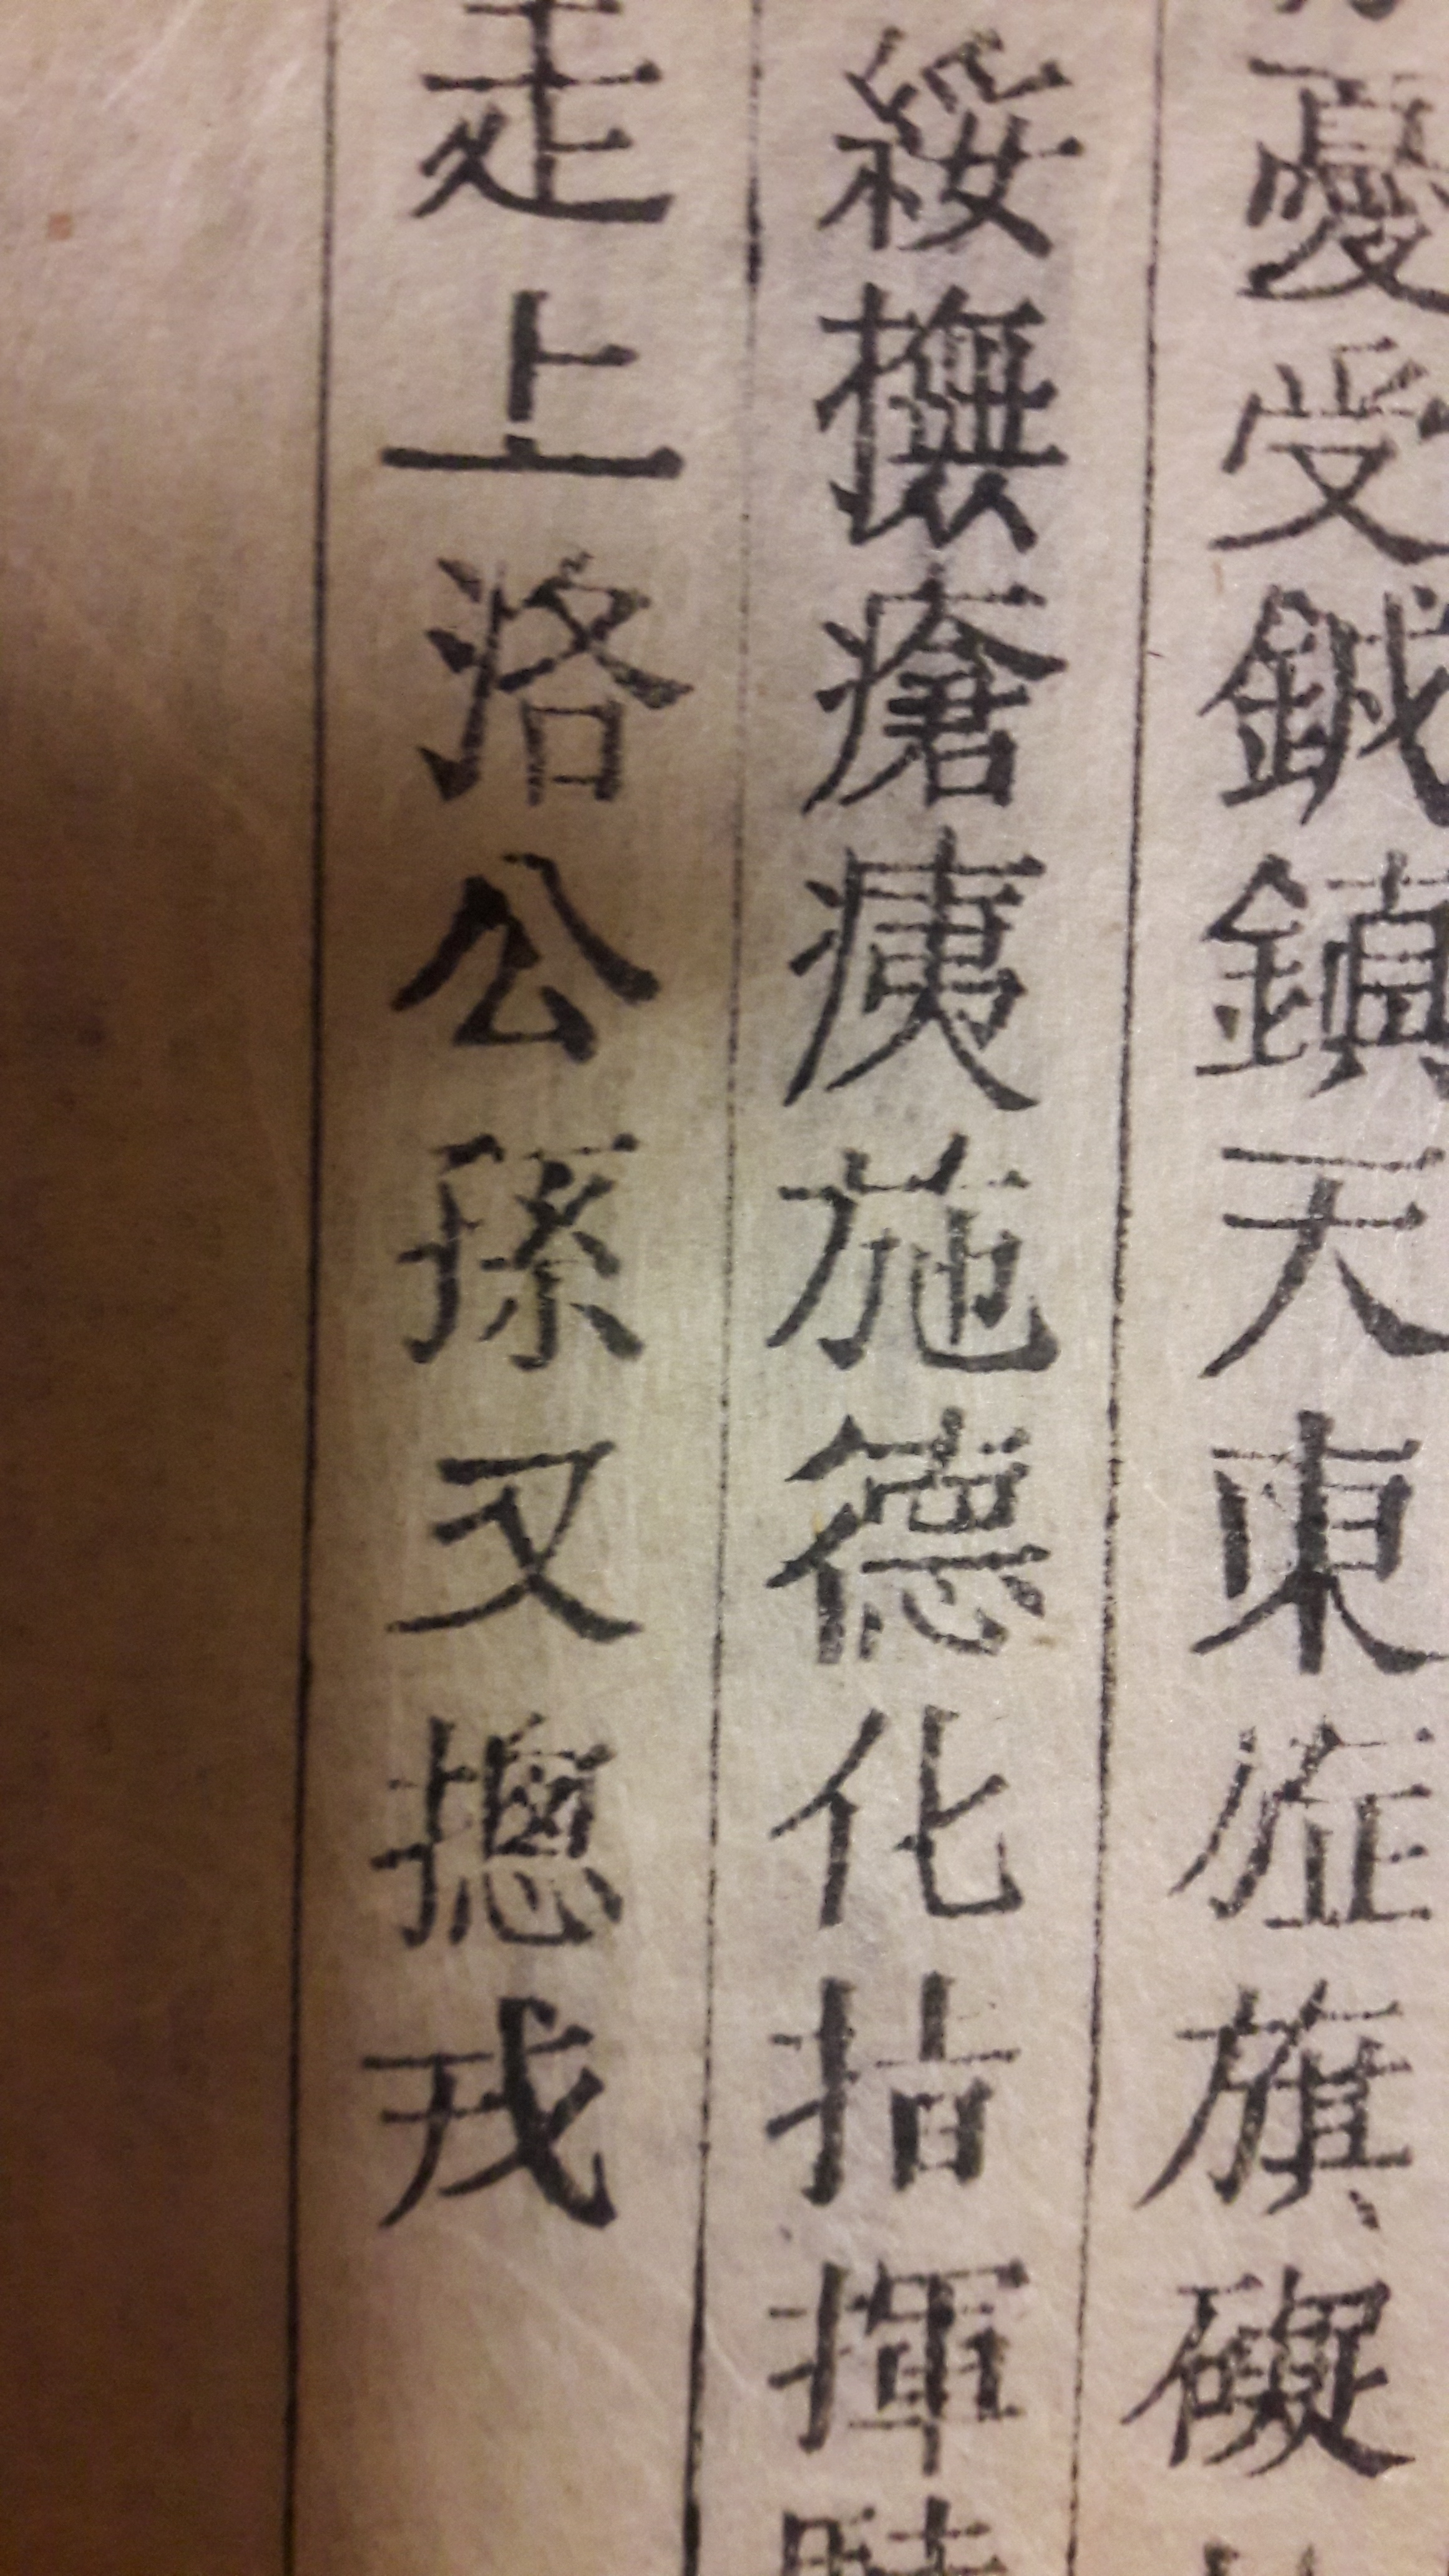 憂受鉞鎮天東旌旗礙
綏撫瘡痍施德化指揮
走上洛公孫又摠戎